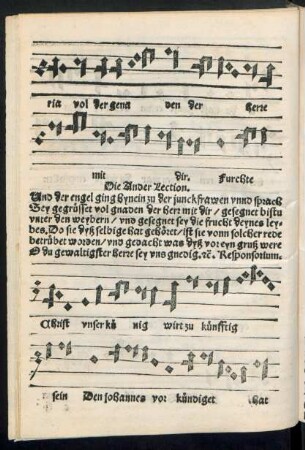 ria vol der gena den der herre
mit dir. Furchte
Die Ander Lection.
Und der engel ging hynein zu der junckfrawen unnd sprach
Bey gegrüsset vol gnaden der herr mit dir / gesegnet bistu
vnter den weybern / vnd gesegnet sey die frucht deynes ley-
bes, Do sie dyß selbige hat gehöret / ist sie vonn solcher rede
betrübet worden / vnd gedacht was dyß vor eyn gruß were
O du gewaltigster herre sey vns gnedig. ⁊c. Responsorium.
Christ vnser kü nig wirt zu künfftig
sein Den Johannes vor kündiget hat